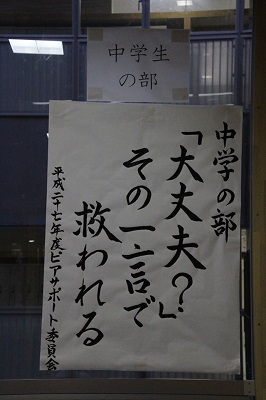 中学生
の部
中学の部
「大丈夫?」
その一言で
救われる
平成二十七年度ピアサポート委員会